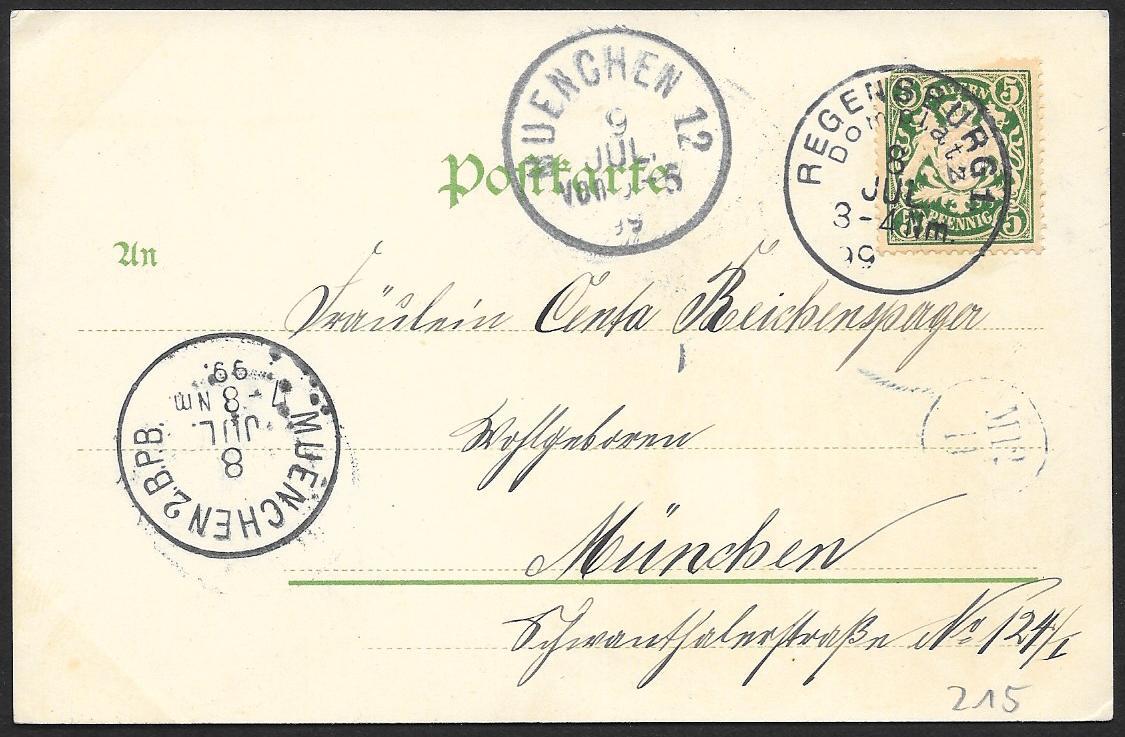 Postkarte
An
Fräulein Centa Reichenspager
Wohlgeboren
München
Schwanthalerstraße No 124/I
215
MUENCHEN 12
9
JUL.
REGENSBURG 1
Domplatz
8
JUL
3-4 Nm.
99
BAYERN
5 5
5 PFENNIG 5
MUENCHEN 2. B.P.B.
8
JUL.
7-8 Nm
99.